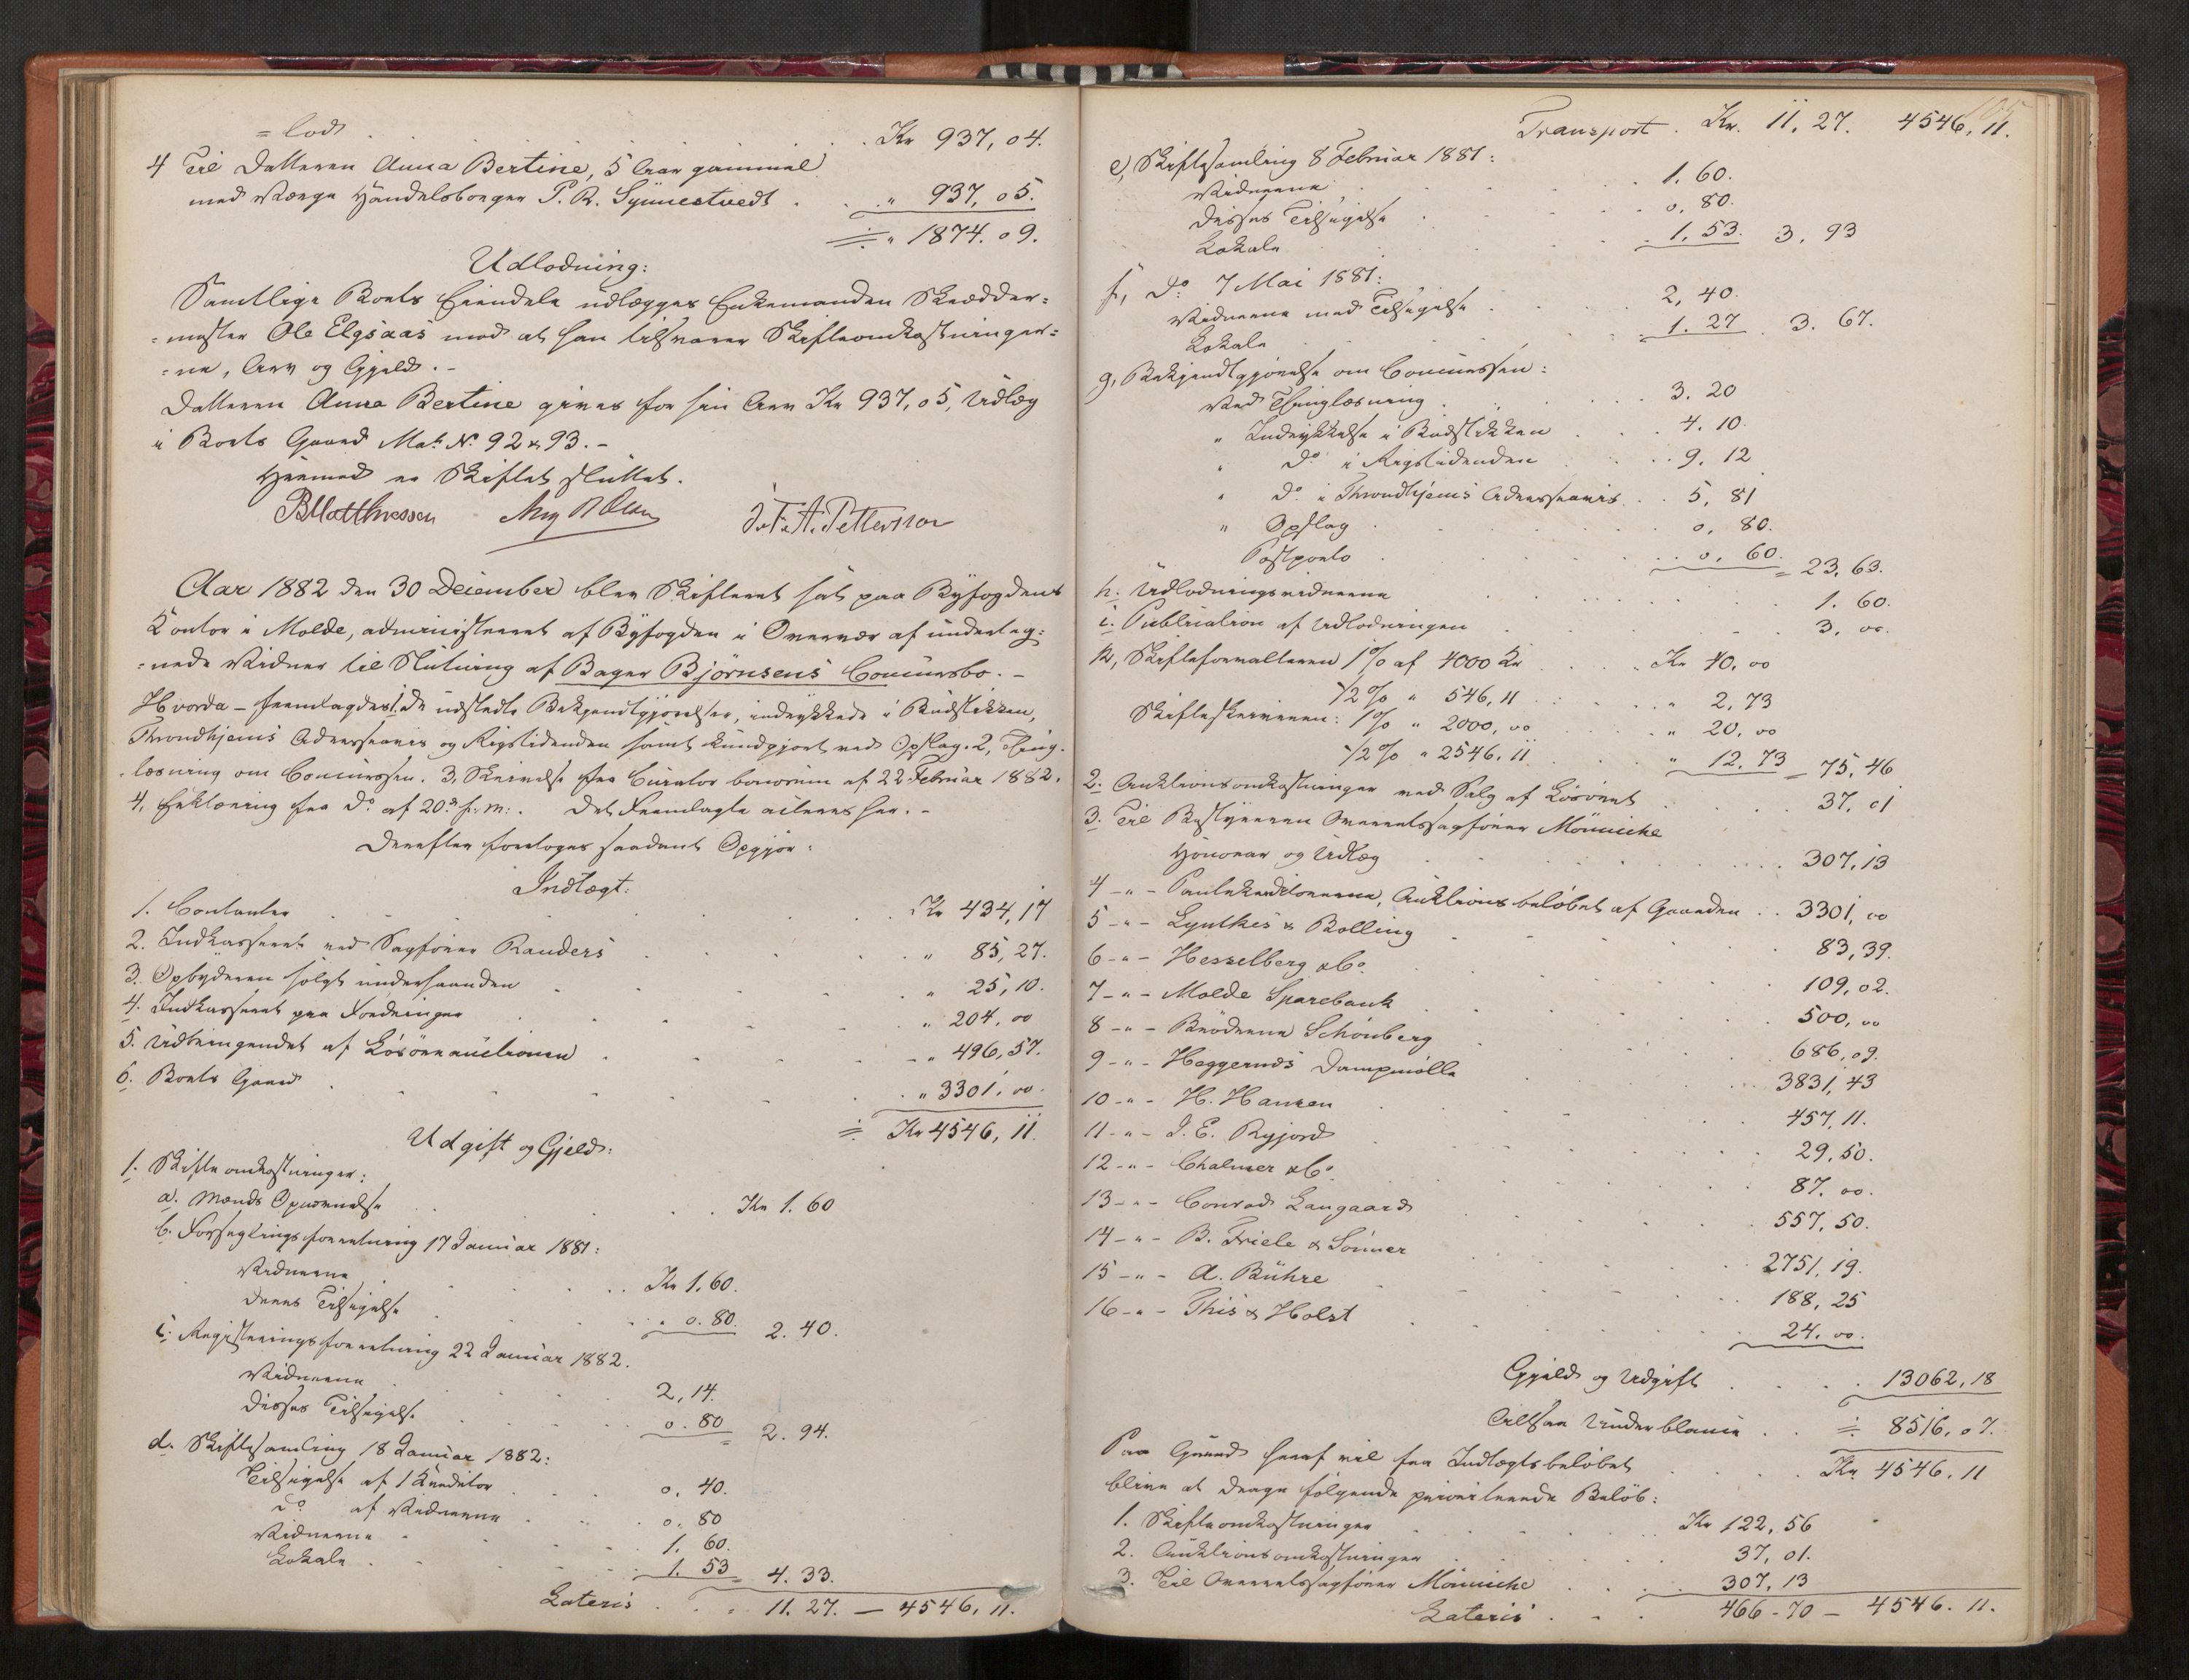 = lod . . . Kr 937,04.
4 Til Datteren Anna Bertine, 5 Aar gammel
med Værge Handelsborger P. R. Synnestvedt . . " 937,05.
" 1874.09.
Udlodning:
Samtlige Boets Eiendele udlægges Enkemanden Skrædder=
=mester Ole Elgsaas mod at han tilsvarer Skifteomkostninger=
=ne, Arv og Gjeld. -
Datteren Anna Bertine gives for sin Arv Kr 937,05, Udlæg
i Boets Gaard Mat. No 92 & 93. -
Hermed er Skiftet sluttet.
B Matthiessen Aug R Olsen J. F. A. Pettersson
Aar 1882 den 30 December blev Skifteret sat paa Byfogdens
Kontor i Molde, administreret af Byfogden i Overvær af underteg=
=nede Vidner til Slutning af Bager Björnsens Concursbo. -
Hvorda - fremlagdes 1. De udstedte Bekjendtgjörelser, indrykkede i Budstikken,
Throndhjems Adresseavis og Rigstidenden samt kundgjort ved Opslag. 2, Thing=
=læsning om Concursen. 3. Skrivelse fra Curator bonorum af 22 Februar 1882.
4. Erklæring fra Do af 20. f. m:. Det Fremlagte acteres her. -
Derefter foretoges saadant Opgjör:
Indtægt:
1. Contanter . . . Kr 434,17
2. Indkasseret ved Sagförer Randers . . . " 85,27.
3. Opbyderen solgt underhaanden . . . " 25,10.
4. Indkasseret paa Fordringer . . . " 204,00
5. Udbringendet af Lösöreauctionen . . . " 496,57.
6. Boets Gaard . . . " 3301,00
Kr 4546,11.
Udgift og Gjeld:
1. Skifteomkostninger:
a. Mænds Opnævnelse . . . Kr 1.60
b. Forseglingsforretning 17 Januar 1881:
Vidnerne . . . Kr 1.60.
Deres Tilsigelse . . . " 0.80. 2.40.
c. Registreringsforretning 22 Januar 1882.
Vidnerne . . . 2,14.
Disses Tilsigelse . . . 0.80 2.94.
d. Skiftesamling 18 Januar 1882:
Tilsigelse af 1 Kreditor . . . 0.40.
Do af Vidnerne . . . 0.80
Vidnerne . . . 1.60.
Lokale . . . 1.53 4.33.
Lateris . . . 11.27. — 4546.11.
Transport . Kr. 11,27. 4546,11.
e, Skiftesamling 8 Februar 1881:
Vidnerne . . . 1.60.
Disses Tilsigelse . . . 0,80.
Lokale . . . 1,53. 3,93
f, Do 7 Mai 1881:
Vidnerne med Tilsigelse . . . 2,40.
Lokale . . . 1.27 3.67.
g, Bekjendtgjörelse om Concursen:
Ved Thinglæsning . . . 3.20
" Indrykkelse i Budstikken . . . 4.10.
" Do i Rigstidenden . . . 9.12
" Do i Throndhjems Adresseavis . . 5,81
" Opslag . . . 0,80.
Postporto . . . 0,60. 23,63.
h. Udlodningsvidnerne . . . 1.60.
i. Publication af Udlodningen . . . 3,00.
k, Skifteforvalteren 1% af 4000 Kr . . . Kr 40,00
1/2% " 546,11 . . . " 2,73
Skifteskriveren: 1% " 2000,00 . . . " 20,00
1/2% " 2546,11 . . . " 12.73 75,46
2. Auktionsomkostninger ved Salg af Lösöret . . . 37,01
3. Til Bestyreren Overretssagförer Mönniche
Honorar og Udlæg . . . 307,13
4 - " - Pantekreditorerne, Auktionsbelöbet af Gaarden . . 3301,00
5 - " - Lynthes & Bolling . . . 83,39.
6 - " - Hesselberg & Co. . . . 109,02.
7 - " - Molde Sparebank . . . 500,00
8 - " - Brödrene Schönberg . . . 686,09.
9 - " - Heggernds Dampmölle . . . 3831,43
10 - " - H. Hansen . . . 457,11.
11 - " - J. E. Ryjord . . . 29,50.
12 - " - Chalmer & Co. . . . 87.00.
13 - " - Conrad Langaard . . . 557,50.
14 - " - B. Friele & Sönner . . . 2751,19.
15 - " - A. Bühre . . . 188,25
16 - " - This & Holst . . . 24.00.
Gjeld og Udgift . . . 13062,18
Altsaa Underblance . . . 8516,07.
Paa Grund heraf vil fra Indtægtsbelöbet . . . Kr 4546.11
blive at drage fölgende prioriterede Belöb:
1. Skifteomkostninger . . . Kr 122,56
2. Auktionsomkostninger . . . 37,01.
3. Til Overretssagförer Mönniche . . . 307,13
Lateris . . . 466-70 — 4546.11.